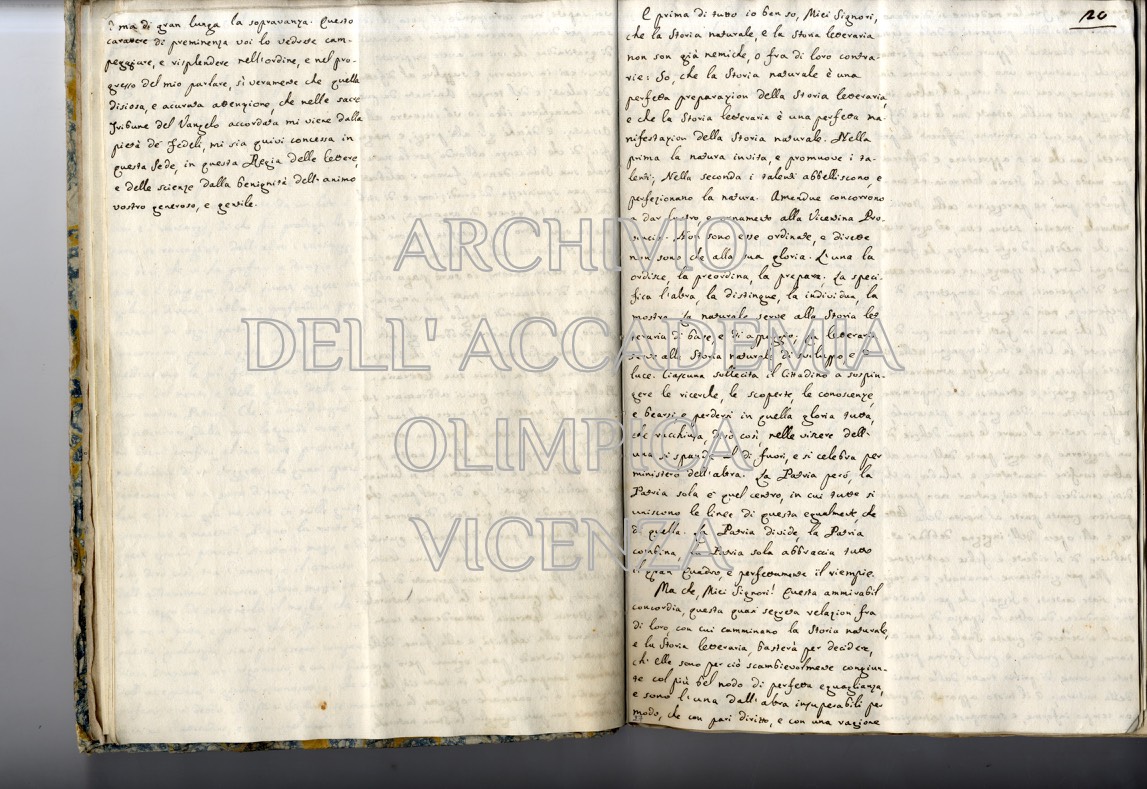 ? ma di gran lunga la sopravanza. Questo
carattere di preminenza voi lo vedrete cam-
peggiare, e risplendere nell'ordine, e nel pro-
gresso del mio parlare, sì veramente che quella
disiosa, e acurata attenzione, che nelle sacre
Tribune del Vangelo accordata mi viene dalla
pietà de' Fedeli, mi sia quivi concessa in
questa Sede, in questa Regia delle lettere,
e delle scienze dalla benignità dell'animo
vostro generoso, e gentile.
20
E prima di tutto io ben so, Miei Signori,
che la Storia naturale, e la Storia letteraria
non son già nemiche, o fra di loro contra-
rie: So, che la Storia naturale è una
perfetta preparazion della Storia letteraria,
e che la Storia letteraria è una perfetta ma-
nifestazion della Storia naturale. Nella
prima la natura invita, e promuove i ta-
lenti; Nella seconda i talenti abbelliscono, e
perfezionano la natura. Amendue concorrono
a dar lustro, e ornamento alla Vicentina Pro-
vincia. Non sono esse ordinate, e dirette
non sono che alla sua gloria. L'una la
ordisce, la preordina, la prepara. La speci-
fica l'altra, la distingue, la individua, la
mostra. La naturale serve alla Storia let-
teraria di base, e di appoggio. La letteraria
serve alla Storia naturale di sviluppo e di
luce. Ciascuna sollecita il Cittadino a sospin-
gere le ricerche, le scoperte, le conoscenze,
e bearsi e perdersi in quella gloria tutta,
che racchiusa, dirò così, nelle viscere dell'
una si spande al di fuori, e si celebra per
ministero dell'altra. La Patria però, la
Patria sola è quel centro, in cui tutte si
uniscono le linee di questa egualmente, che
di quella. La Patria divide, la Patria
combina, la Patria sola abbraccia tutto
il gran Quadro, e perfettamente il riempie.
Ma che, Miei Signori! Questa ammirabil
concordia, questa quasi segreta relazion fra
di loro, con cui camminano la Storia naturale,
e la Storia letteraria, basterà per decidere,
ch'elle sono per ciò scambievolmente congiun-
te col più bel nodo di perfetta eguaglianza,
e sono l'una dall'altra insuperabili per
modo, che con pari diritto, e con una ragione
ARCHIVIO
DELL'ACCADEMIA
OLIMPICA
VICENZA